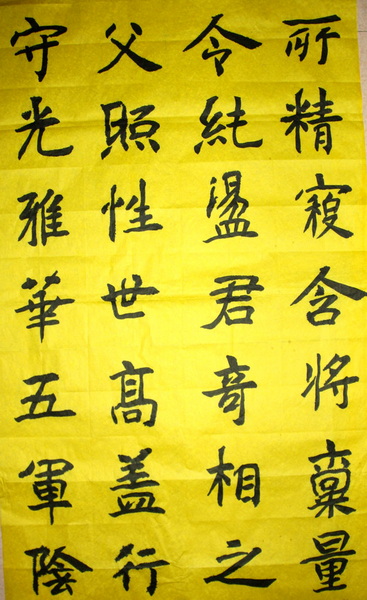 所精含将稟量
令純盪君奇相之
父照性世髙盖行
守光雅華五軍陰